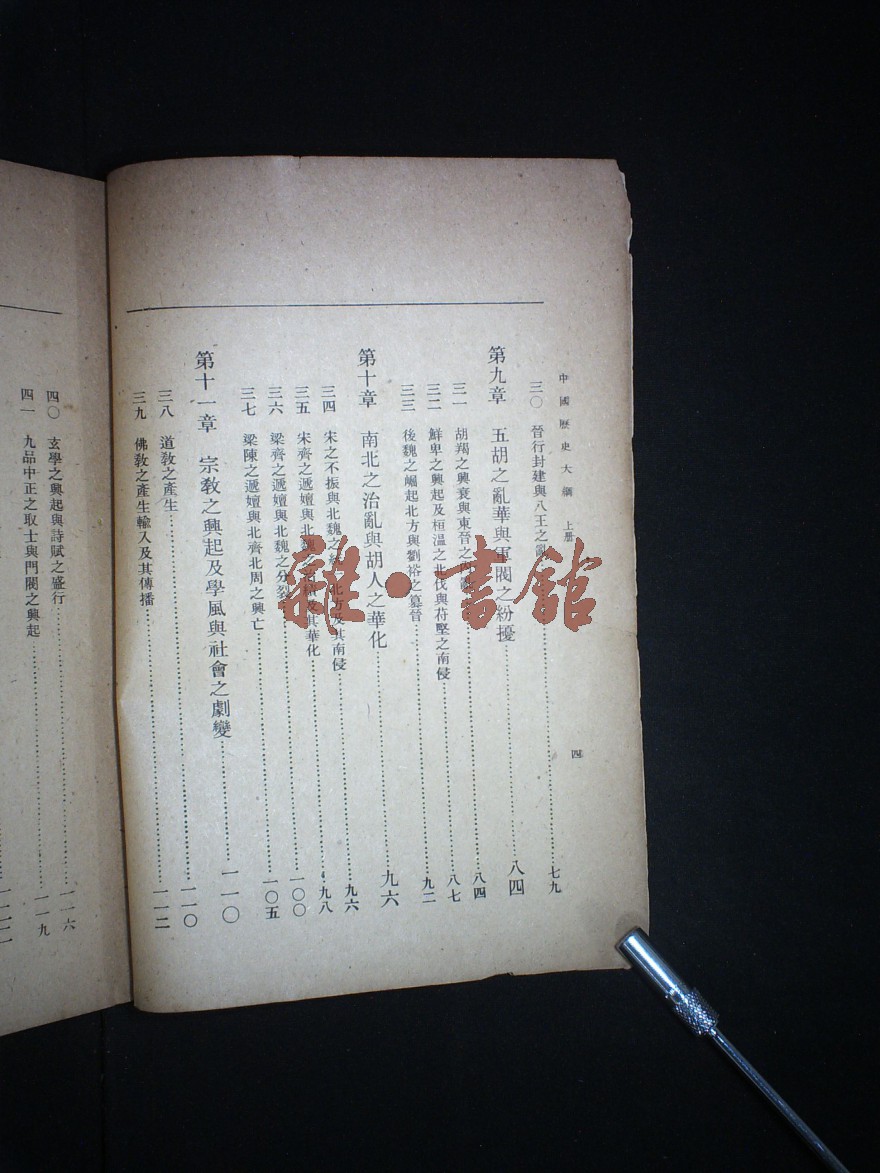 中國歷史大綱　上册
四
三〇　晉行封建與八王之亂……七九
第九章　五胡之亂華與軍閥之紛擾……八四
三一　胡羯之興衰與東晉之……八四
三二　鮮卑之興起及桓溫之北伐與苻堅之南侵……八七
三三　後魏之崛起北方與劉裕之篡晉……九二
第十章　南北之治亂與胡人之華化……九六
三四　宋之不振與北魏之……北方及其南侵……九六
三五　宋齊之遞嬗與北魏……及其華化……九八
三六　梁齊之遞嬗與北魏之分裂……一〇〇
三七　梁陳之遞嬗與北齊北周之興亡……一〇五
第十一章　宗教之興起及學風與社會之劇變……一一〇
三八　道教之產生……一一〇
三九　佛教之產生輸入及其傳播……一一二
四〇　玄學之興起與詩賦之盛行……一一六
四一　九品中正之取士與門閥之興起……一一九
雜·書館